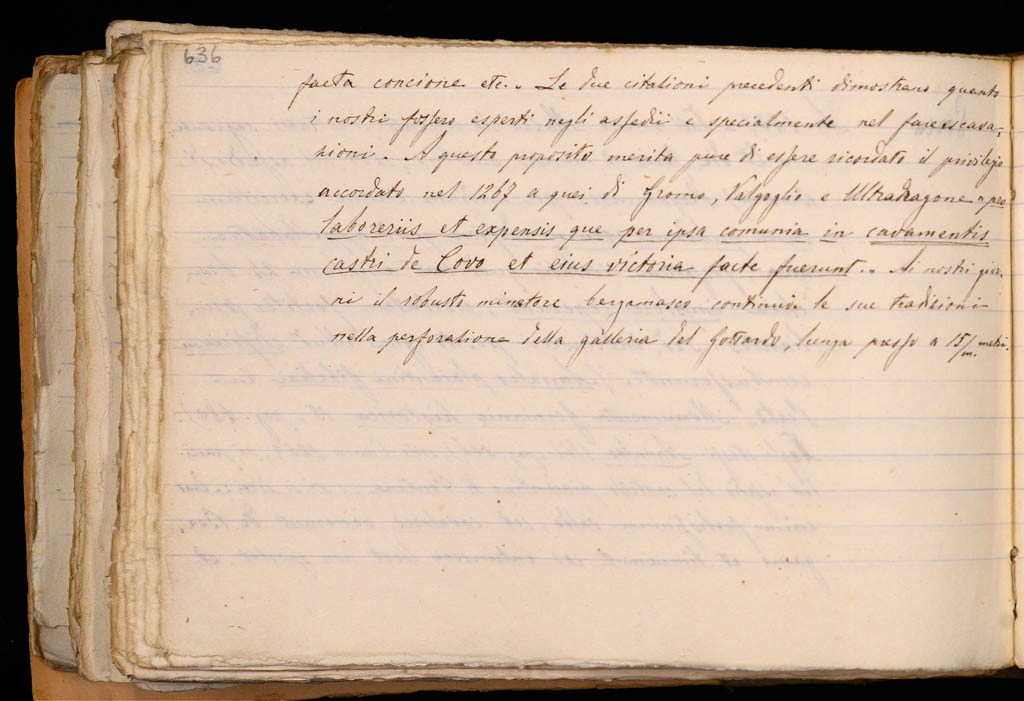 636
facta concione etc.. Le due citazioni precedenti dimostrano quanto
i nostri fossero esperti negli assedii e specialmente nel fare escava-
zioni. A questo proposito merita pure di essere ricordato il privilegio
accordato nel 1267 a quei di Gromo, Valgoglio e Ultradragone " pro
laboreriis et expensis que per ipsa comunia in cavamentis
castri de Covo et eius victoria facte fuerunt.. Ai nostri gior-
ni il robusto minatore bergamasco continuò le sue tradizioni
nella perforazione della galleria del Gottardo, lunga presso a 15/m. metri.